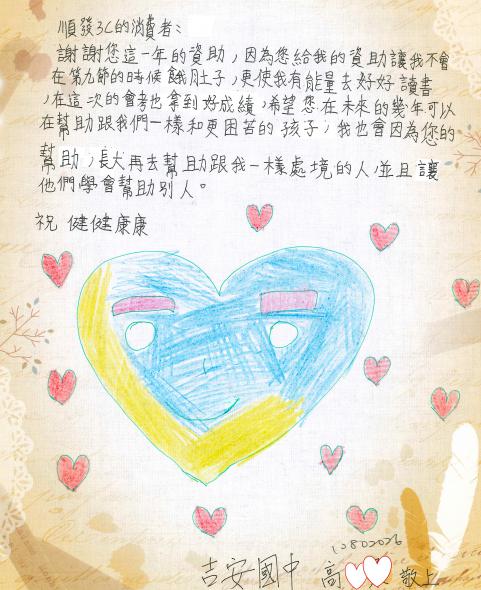 順發3C的消費者：
謝謝您這一年的資助，因為您給我的資助讓我不會
在第九節的時候餓肚子，更使我有能量去好好讀書
，在這次的會考也拿到好成績，希望您在未來的幾年可以
在幫助跟我們一樣和更困苦的孩子，我也會因為您的
幫助，長大再去幫助跟我一樣處境的人，並且讓
他們學會幫助別人。
祝 健健康康
1080226
吉安國中 高 敬上